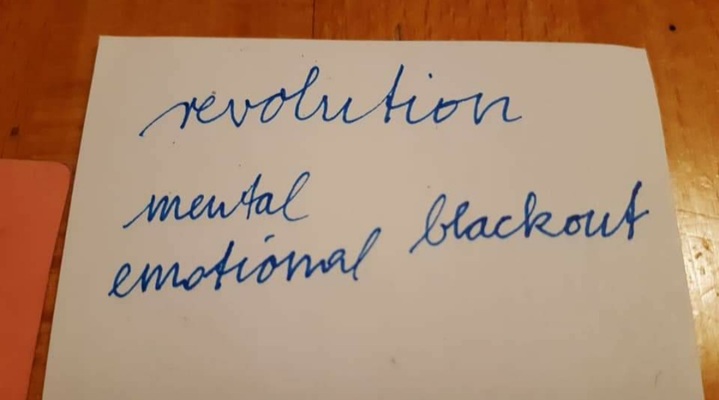 revolution
mental
emotional blackout